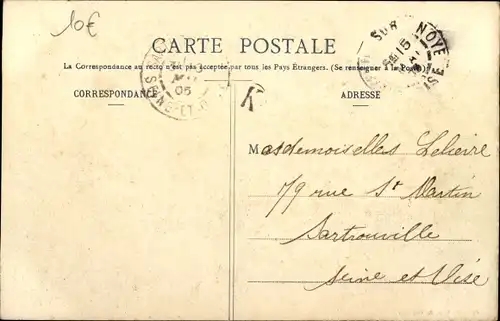 10€
CARTE POSTALE
La Correspondance au recto n'est pas acceptée par tous les Pays Étrangers. (Se renseigner à la Poste)
CORRESPONDANCE
ADRESSE
SUR NOYE
15
05
Mesdemoiselles Lelievre
79 rue St Martin
Sartrouville
Seine et Oise